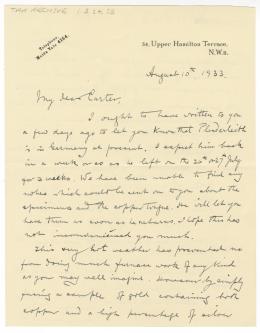 TAA ARCHIVE 1.2.24.28
Telephone,
Maida Vale 6564.
54, Upper Hamilton Terrace,
N.W.8.
August 10th 1933.
My dear Carter,
I ought to have written to you
a few days ago to let you know that Plenderleith
is in Germany at present. I expect him back
in a week or so as he left on the 26th or 27th July
for 3 weeks. We have been unable to find any
notes which could be sent on to you about the
specimens and the copper tongue. He will let you
have them as soon as he returns, I hope this has
not inconvenienced you much.
This very hot weather has prevented me
from doing much furnace work of any kind
as you may well imagine. However by simply
fusing a sample of gold containing both
copper and a high percentage of silver